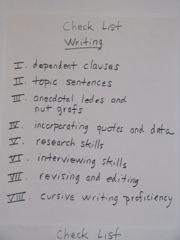 Check List
Writing
I. dependent clauses
II. topic sentences
III. anecdotal ledes and
nut grafs
IV. incorporating quotes and data
V. research skills
VI. interviewing skills
VII. revising and editing
VIII. cursive writing proficiency
Check List